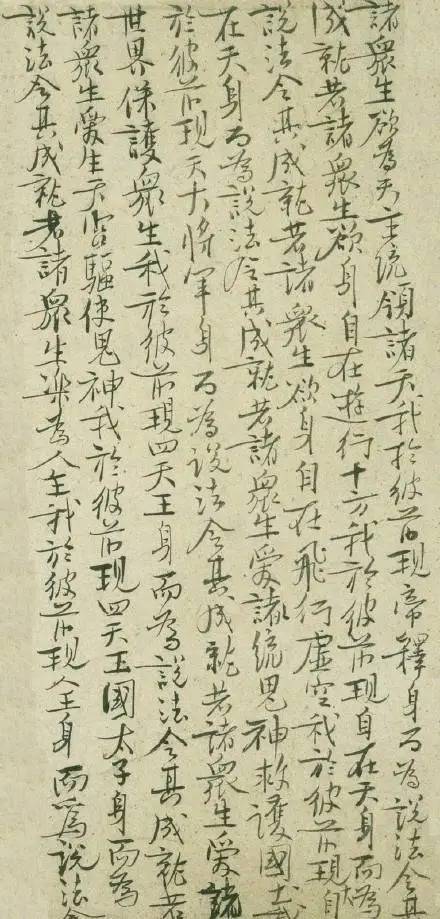 諸眾生欲為天主統領諸天我於彼前現帝釋身而為說法令其
成就若諸眾生欲身自在遊行十方我於彼前現自在天身而為
說法令其成就若諸眾生欲身自在飛行虛空我於彼前現大自
在天身而為說法令其成就若諸眾生愛諸統鬼神救護國土我
於彼前現天大將軍身而為說法令其成就若諸眾生愛諸
世界保護眾生我於彼前現四天王身而為說法令其成就若
諸眾生愛生天宮驅使鬼神我於彼前現四天王國太子身而為
說法令其成就若諸眾生樂為人王我於彼前現人王身而為說法令